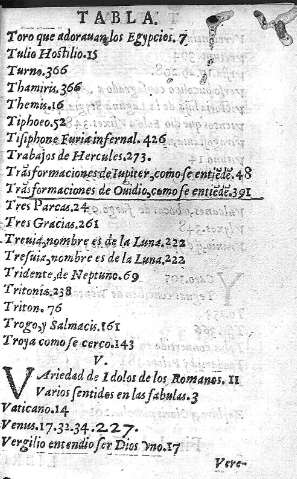 TABLA.
Toro que adorauan los Egypcios. 7
Tulio Hostilio. 15
Turno. 366
Thamiris. 366
Themis. 16
Tiphoeo. 52
Tisiphone Furia infernal. 426
Trabajos de Hercules. 273.
Trãsformaciones de Iupiter, como se entiẽdẽ. 48
Trãsformaciones de Ouidio, como se entiẽdẽ. 391
Tres Parcas. 24
Tres Gracias. 261
Treuia, nombre es de la Luna. 222
Tresuia, nombre es de la Luna. 222
Tridente, de Neptuno. 69
Tritonia. 238
Triton. 76
Trogo, y Salmacis. 161
Troya como se cerco. 143
V.
VAriedad de Idolos de los Romanos. 11
Varios sentidos en las fabulas. 3
Vaticano. 14
Venus. 17. 32. 34. 227.
Vergilio entendio ser Dios vno. 17
Vere-